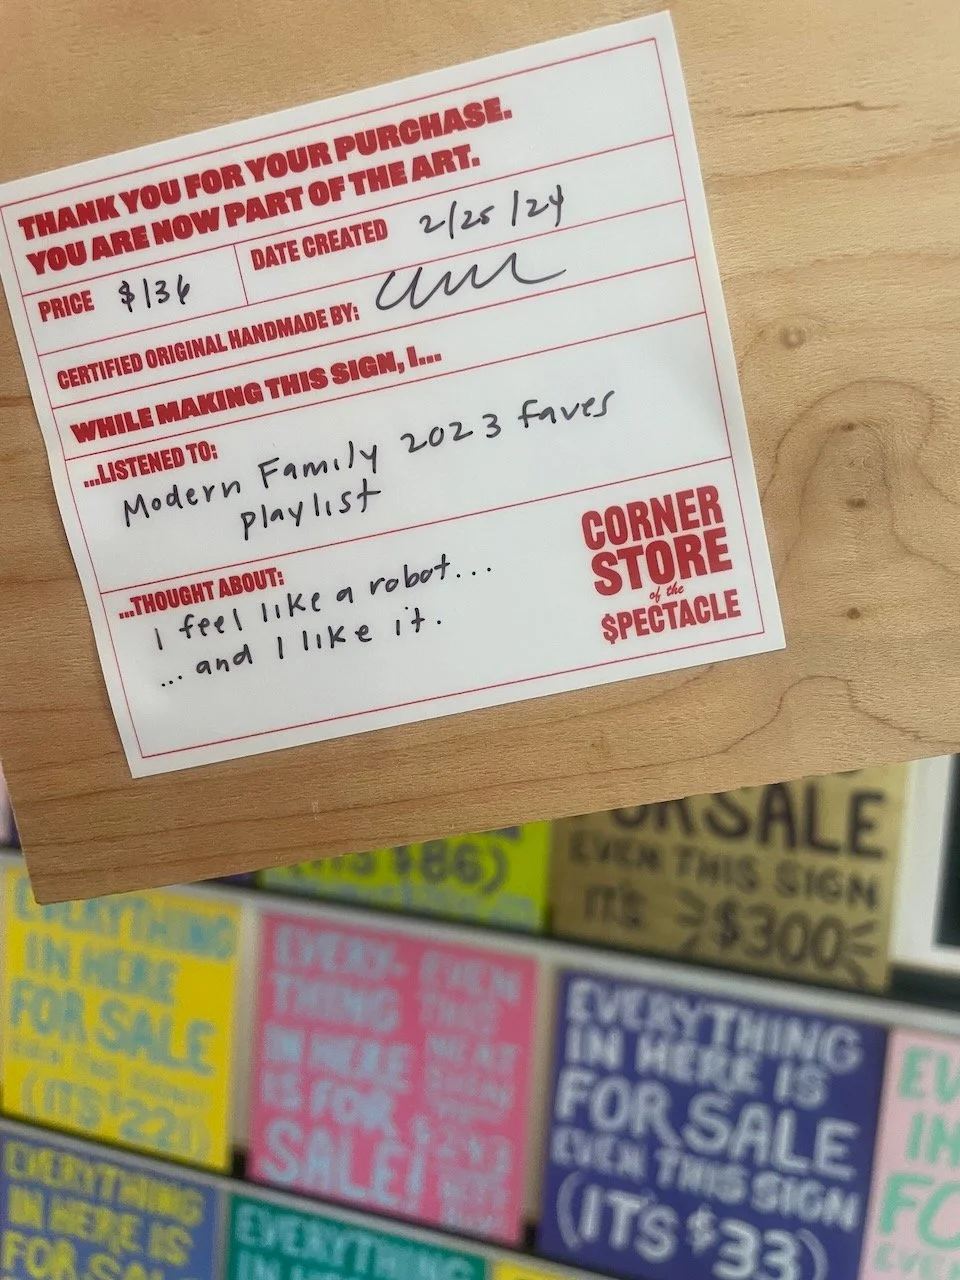 THANK YOU FOR YOUR PURCHASE.
YOU ARE NOW PART OF THE ART.
PRICE $136
DATE CREATED 2/25/24
CERTIFIED ORIGINAL HANDMADE BY:
WHILE MAKING THIS SIGN, I...
...LISTENED TO:
Modern Family 2023 faves
playlist
...THOUGHT ABOUT:
I feel like a robot...
... and I like it.
CORNER
STORE
of the
$PECTACLE
$86)
SALE
EVEN THIS SIGN
IT'S $300
EVERYTHING
IN HERE
FOR SALE
EVERY-
THING
IN HERE
IS FOR
SALE!
EVEN
THIS
EVERYTHING
IN HERE IS
FOR SALE
EVEN THIS SIGN
(IT'S $33)
EVERYTHING
IN HERE IS
FOR
EVERYTHING